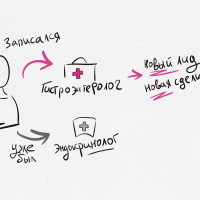 Записался
Гастроэнтеролог
новый лид
новая сделк
уже
был
эндокринолог